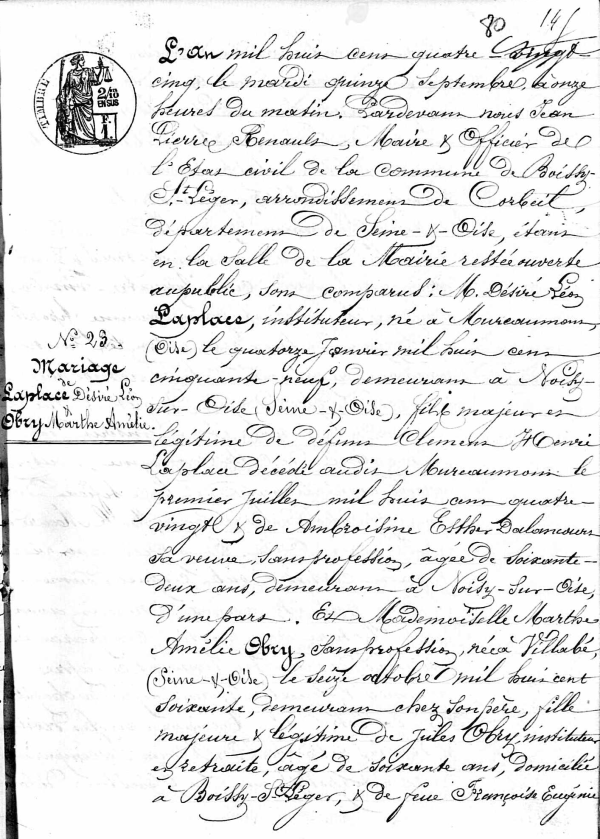 80 14
TIMBRE
2/10
EN SUS
F.
1.
L'an mil huit cent quatre-vingt-
cinq, le mardi quinze Septembre, à onze
heures du matin. Pardevant nous Jean
Pierre Renault, Maire & Officier de
l'Etat civil de la commune de Boissy-
St-Léger, arrondissement de Corbeil,
département de Seine-&-Oise, étant
en la salle de la Mairie restée ouverte
au public, sont comparus: M. Désiré Léon
Laplace, instituteur, né à Mureaumont
(Oise) le quatorze Janvier mil huit cent
cinquante-neuf, demeurant à Noisy-
sur-Oise (Seine-&-Oise), fils majeur et
légitime de défunt Clément Henri
Laplace décédé audit Mureaumont le
premier Juillet mil huit cent quatre-
vingt & de Ambroisine Esther Dalancourt
sa veuve, sans profession, âgée de soixante-
deux ans, demeurant à Noisy-sur-Oise,
d'une part. Et Mademoiselle Marthe
Amélie Obry, sans profession, née à Villabé,
(Seine-&-Oise) le seize octobre mil huit cent
soixante, demeurant chez son père, fille
majeure & légitime de Jules Obry, instituteur
en retraite, âgé de soixante ans, domicilié
à Boissy-St-Léger, & de feue Françoise Eugénie
No 23
Mariage
de
Laplace Désiré Léon
&
Obry Marthe Amélie.